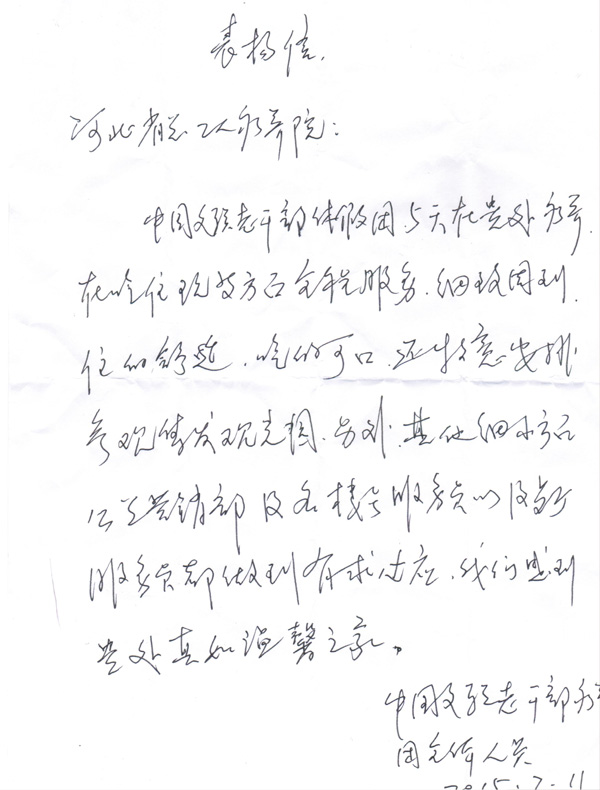 表扬信.
河北省总工人疗养院:
中国文联老干部休假团5天在贵处疗养.
在吃住玩等方面全程服务.细致周到.
住的舒适.吃的可口.还特意安排
参观集发观光园.另外.其他细小方面
公关营销部及各楼层服务员以及餐厅
服务员都做到有求必应.我们感到
贵处真如温馨之家。
中国文联老干部疗
团全体人员
2015.7.11